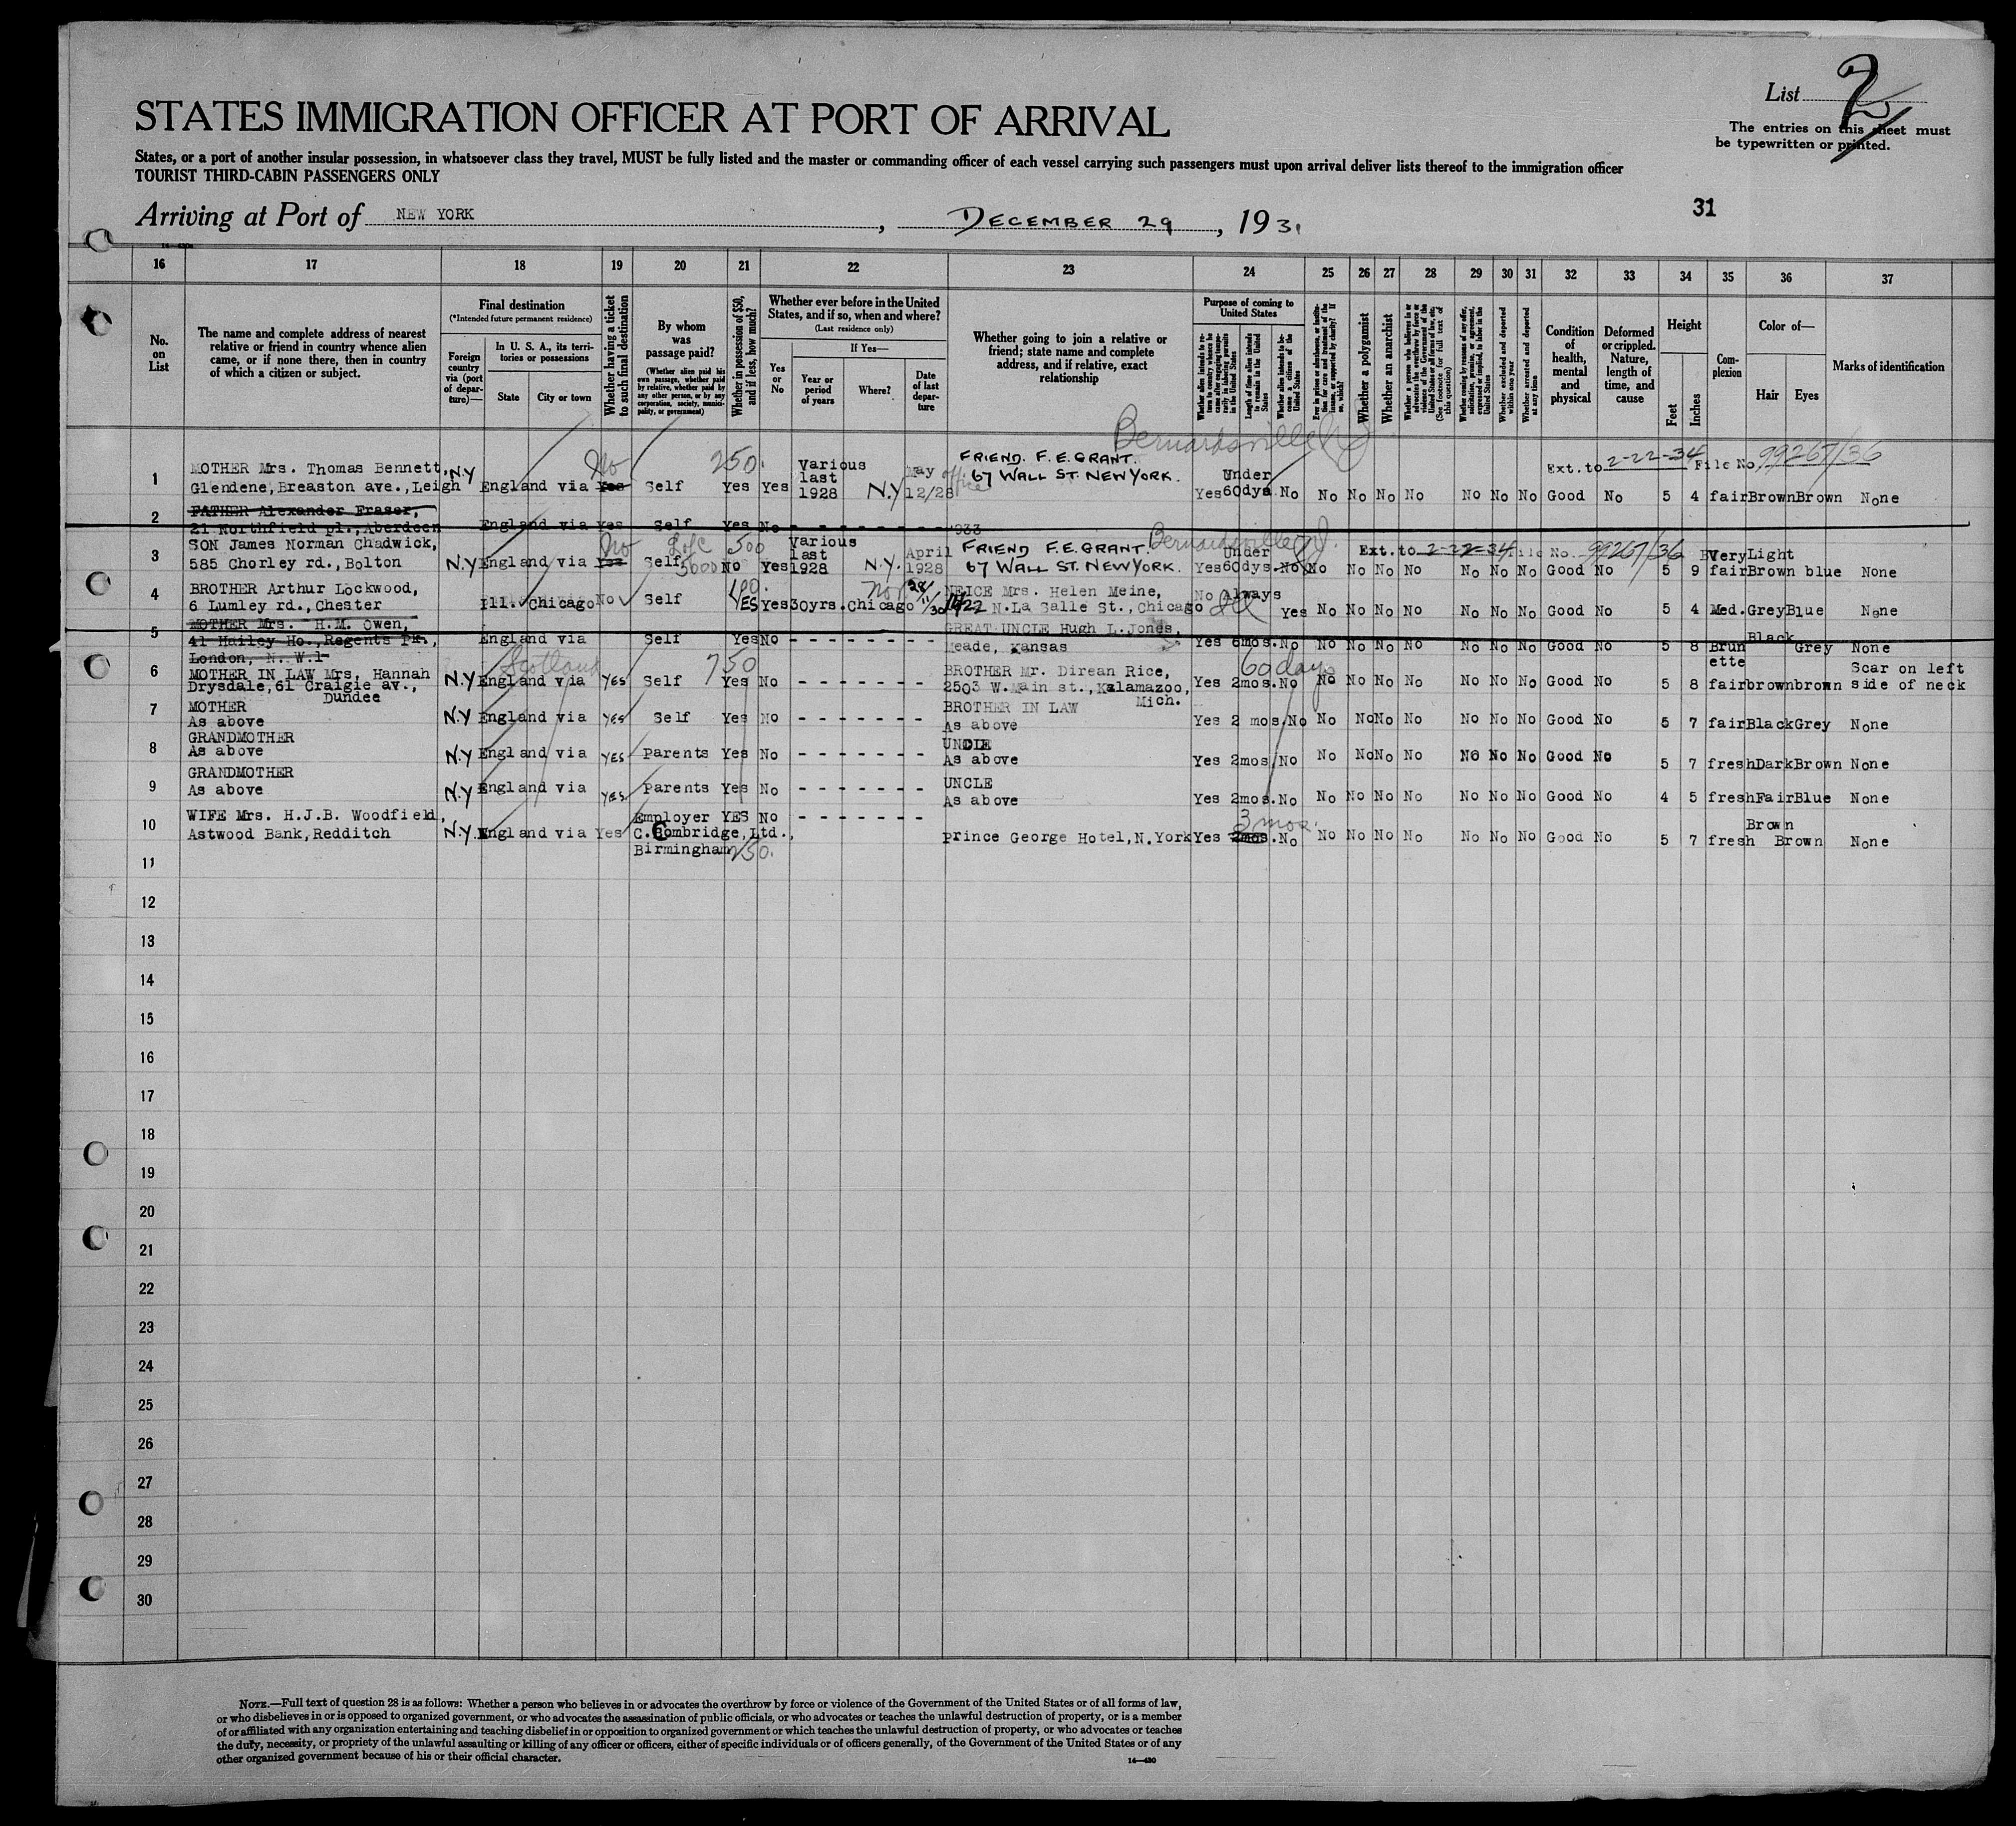 List 2
STATES IMMIGRATION OFFICER AT PORT OF ARRIVAL
The entries on this sheet must
be typewritten or printed.
States, or a port of another insular possession, in whatsoever class they travel, MUST be fully listed and the master or commanding officer of each vessel carrying such passengers must upon arrival deliver lists thereof to the immigration officer
TOURIST THIRD-CABIN PASSENGERS ONLY
31
Arriving at Port of NEW YORK, DECEMBER 29, 1931
16 17 18 19 20 21 22 23 24 25 26 27 28 29 30 31 32 33 34 35 36 37
No. on List
The name and complete address of nearest relative or friend in country whence alien came, or if none there, then in country of which a citizen or subject.
Final destination
(*Intended future permanent residence)
Foreign country via (port of departure)—
In U. S. A., its territories or possessions
State
City or town
Whether having a ticket to such final destination
By whom was passage paid?
(Whether alien paid his own passage, whether paid by relative, whether paid by any other person, or by any corporation, society, municipality, or government)
Whether in possession of $50, and if less, how much?
Whether ever before in the United States, and if so, when and where?
(Last residence only)
Yes or No
If Yes—
Year or period of years
Where?
Date of last departure
Whether going to join a relative or friend; state name and complete address, and if relative, exact relationship
Purpose of coming to United States
Length of time alien intends to remain in the United States
Whether alien intends to become a citizen of the United States
Whether a polygamist
Whether an anarchist
Whether excluded and deported within one year
Whether arrested and deported at any time
Condition of health, mental and physical
Deformed or crippled. Nature, length of time, and cause
Height
Feet
Inches
Complexion
Color of—
Hair
Eyes
Marks of identification
Bernardsville NJ
1 MOTHER Mrs. Thomas Bennett, N.Y No 250. Various last May office FRIEND. F. E. GRANT. Under Ext. to 2-22-34 File No. 99267/36
Glendene, Breaston ave., Leigh England via Yes Self Yes Yes 1928 N.Y 12/28 67 WALL ST. NEW YORK. Yes 60dys No No No No No No No No Good No 5 4 fair Brown Brown None
2 FATHER Alexander Fraser,
21 Northfield pl., Aberdeen England via Yes Self Yes No - - - - - - - 1933
3 SON James Norman Chadwick, No L of C 500 Various last April FRIEND F. E. GRANT. Bernardsville NJ. Under Ext. to 2-22-34 File No. 99267/36 Very Light
585 Chorley rd., Bolton N.Y England via Yes Self 5000 No Yes 1928 N.Y. 1928 67 WALL ST. NEW YORK. Yes 60dys. No No No No No No No No Good No 5 9 fair Brown blue None
4 BROTHER Arthur Lockwood, 100. Nov 28/11/30 NEICE Mrs. Helen Meine, No Always
6 Lumley rd., Chester Ill. Chicago No Self YES Yes 30yrs. Chicago 1422 N. La Salle St., Chicago Yes No No No No No No No Good No 5 4 Med. Grey Blue None
5 MOTHER Mrs. H.M. Owen, GREAT UNCLE Hugh L. Jones, Black
41 Hailey Ho., Regents Pk., England via Self Yes No - - - - - - - Meade, Kansas Yes 6mos. No No No No No No No No Good No 5 8 Brunette Grey None
London, N. W.1
Scotland 750 60 days
6 MOTHER IN LAW Mrs. Hannah BROTHER Mr. Direan Rice, Scar on left
Drysdale, 61 Craigie av., N.Y England via YES Self Yes No 2503 W. Main st., Kalamazoo, Yes 2mos. No No No No No No No No Good No 5 8 fair brown brown side of neck
Dundee Mich.
7 MOTHER BROTHER IN LAW
As above N.Y England via YES Self Yes No - - - - - - - As above Yes 2 mos. No No No No No No No No Good No 5 7 fair Black Grey None
8 GRANDMOTHER
As above N.Y England via YES Parents Yes No - - - - - - - As above Yes 2mos No No No No No No No No Good No 5 7 fresh Dark Brown None
9 GRANDMOTHER UNCLE
As above N.Y England via YES Parents Yes No - - - - - - - As above Yes 2mos. No No No No No No No No Good No 4 5 fresh Fair Blue None
10 WIFE Mrs. H.J.B. Woodfield, Employer YES No - - - - - - - 3 mos. Brown
Astwood Bank, Redditch N.Y. England via Yes C. Combridge, Ltd., Prince George Hotel, N. York Yes 2mos. No No No No No No No No Good No 5 7 fresh Brown None
Birmingham 250.
11
12
13
14
15
16
17
18
19
20
21
22
23
24
25
26
27
28
29
30
NOTE.—Full text of question 28 is as follows: Whether a person who believes in or advocates the overthrow by force or violence of the Government of the United States or of all forms of law,
or who disbelieves in or is opposed to organized government, or who advocates the assassination of public officials, or who advocates or teaches the unlawful destruction of property, or is a member
of or affiliated with any organization entertaining and teaching disbelief in or opposition to organized government or which teaches the unlawful destruction of property, or who advocates or teaches
the duty, necessity, or propriety of the unlawful assaulting or killing of any officer or officers, either of specific individuals or of officers generally, of the Government of the United States or of any
other organized government because of his or their official character.
14—430